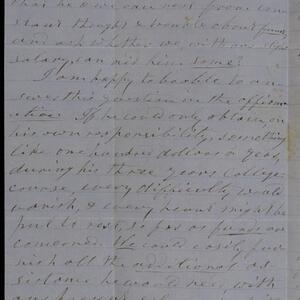 that he & we can rest from con
stant thought & trouble about funds,
and ask whether we, with our
salary, can aid him some?
I am happy to be able to an
swer this question in the affirma
tive. If he could only obtain, on
his own responsibility, something
like one hundred dollars a year,
during his three years College
course, every difficulty would
vanish, & every heart might be
put to rest, so far as funds are
concerned. We could easily fur
nish all the additional as
sistance he would need, with
our present